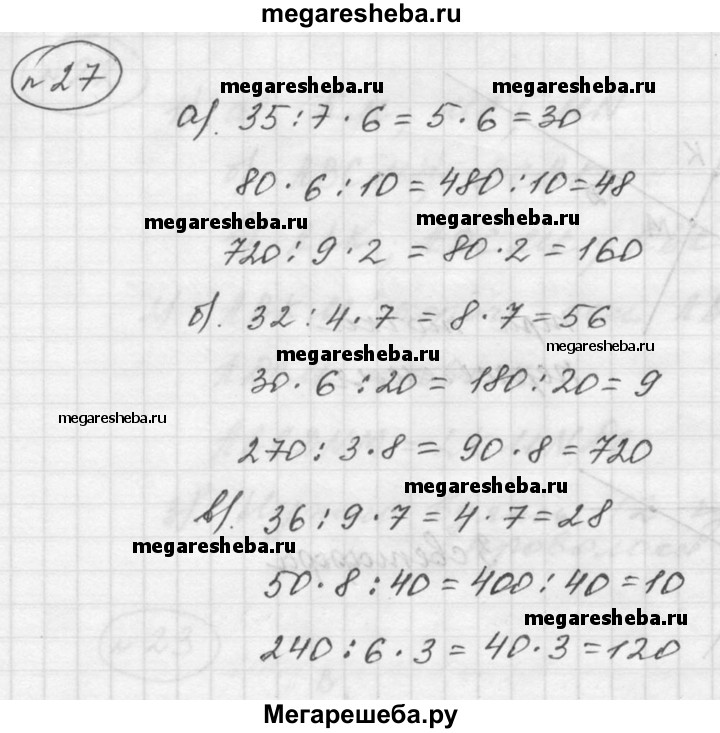 megaresheba.ru
№27
megaresheba.ru megaresheba.ru
а). 35:7·6=5·6=30
80·6:10=480:10=48
megaresheba.ru megaresheba.ru
720:9·2=80·2=160
б). 32:4·7=8·7=56
megaresheba.ru megaresheba.ru
30·6:20=180:20=9
megaresheba.ru
270:3·8=90·8=720
megaresheba.ru
в). 36:9·7=4·7=28
megaresheba.ru
50·8:40=400:40=10
megaresheba.ru
240:6·3=40·3=120
№23
Мегарешеба.ру